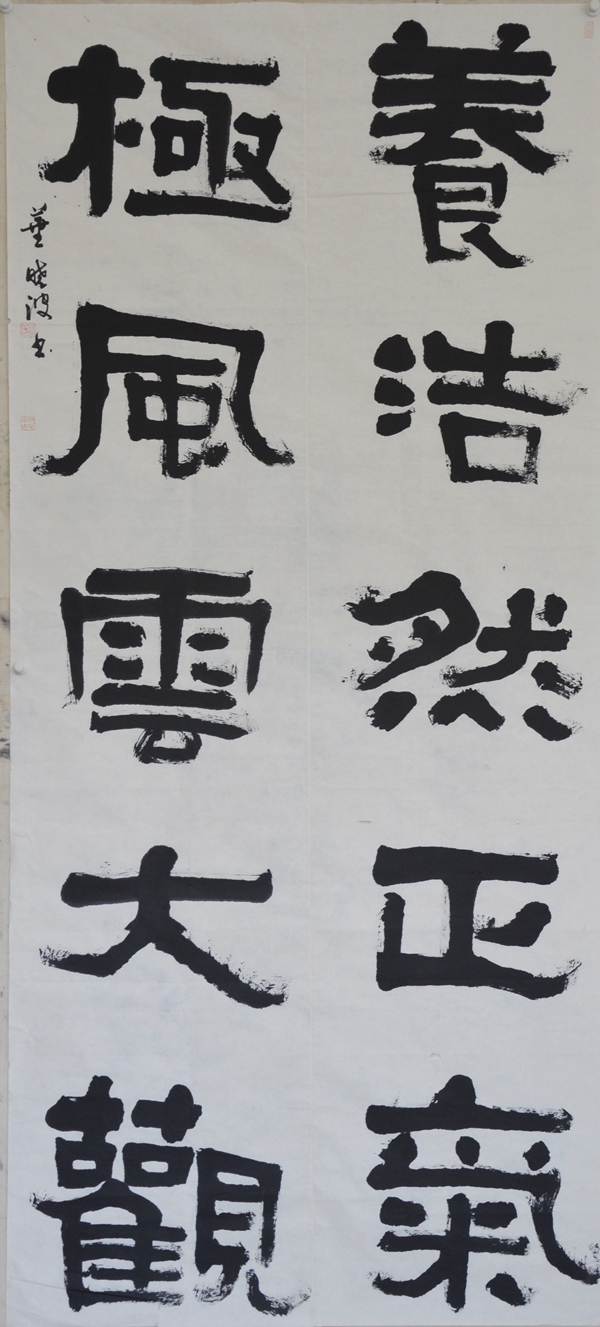 養浩然正氣
極風雲大觀
董曉波书